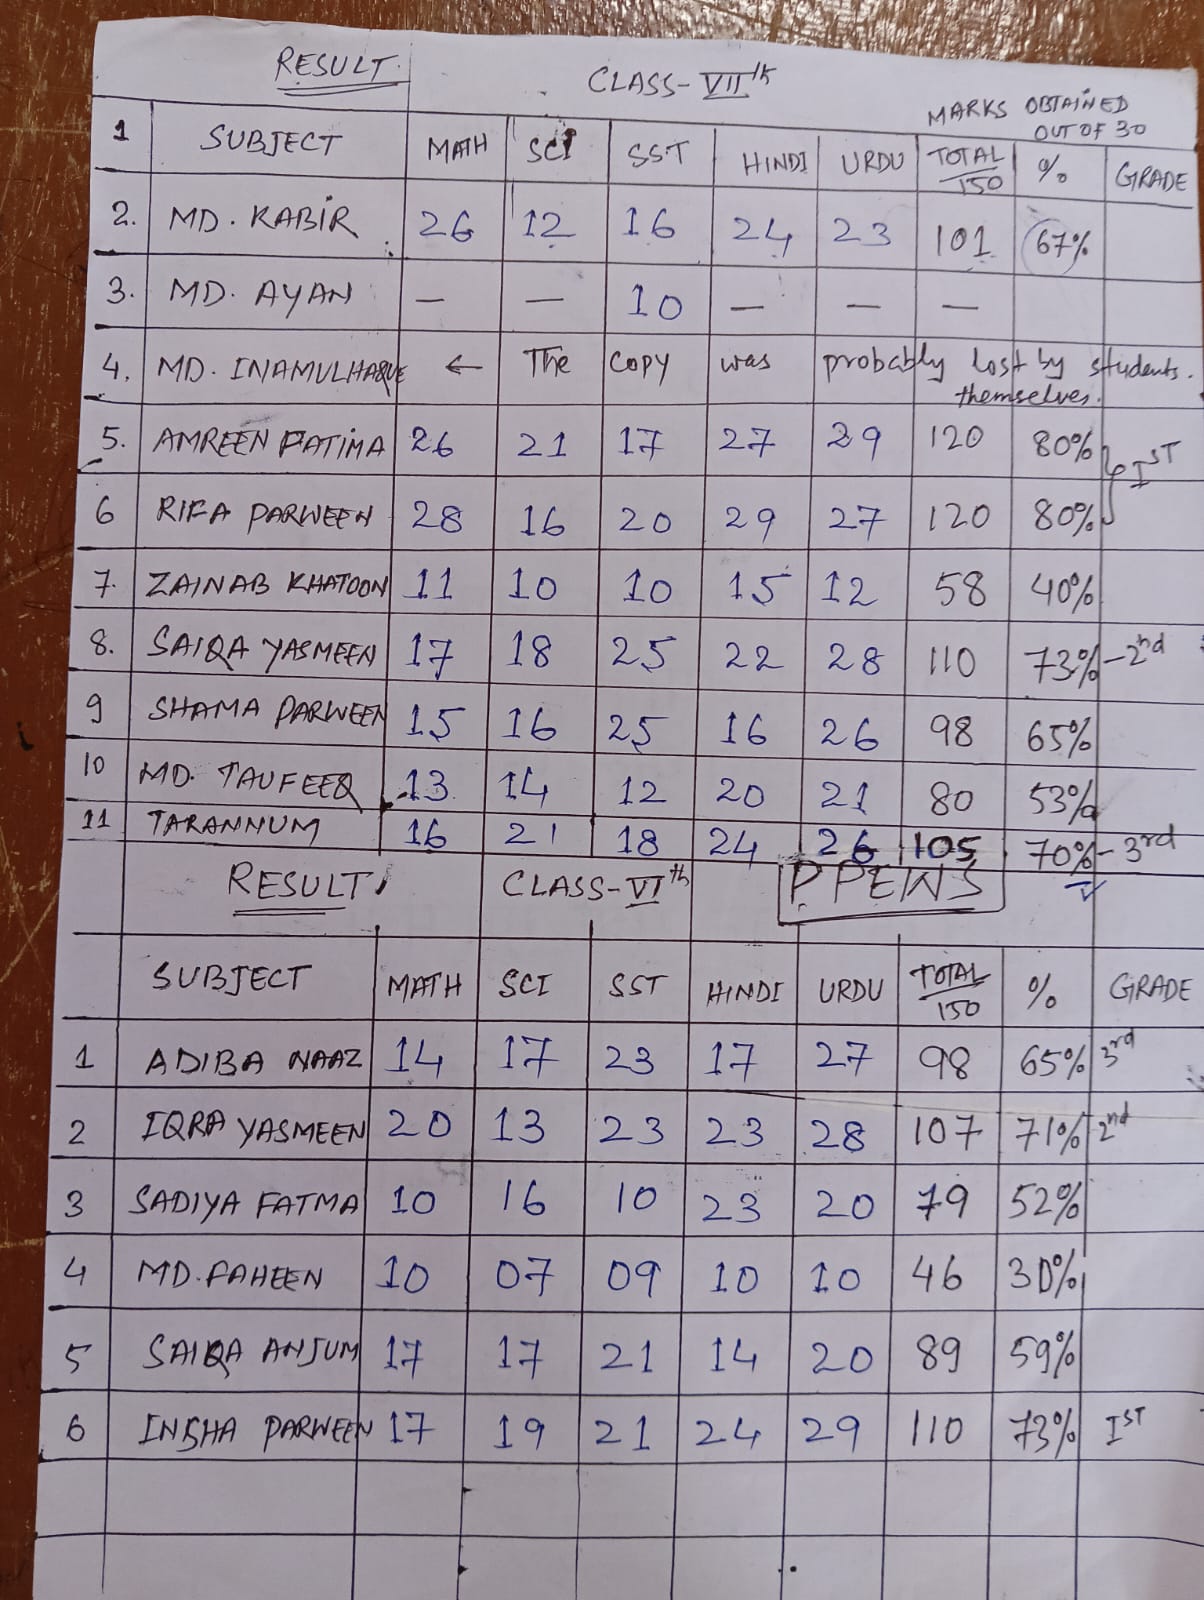 RESULT. CLASS-VIIth
MARKS OBTAINED
OUT OF 30
1 SUBJECT MATH SCI SST HINDI URDU TOTAL/150 % GRADE
2. MD. KABIR 26 12 16 24 23 101 67%
3. MD. AYAN — — 10 — — —
4. MD. INAMULHAQUE ← The copy was probably lost by students.
themselves.
5. AMREEN FATIMA 26 21 17 27 29 120 80% IST
6 RIFA PARWEEN 28 16 20 29 27 120 80%
7. ZAINAB KHATOON 11 10 10 15 12 58 40%
8. SAIQA YASMEEN 17 18 25 22 28 110 73% - 2nd
9 SHAMA PARWEEN 15 16 25 16 26 98 65%
10 MD. TAUFEEQ 13 14 12 20 21 80 53%
11 TARANNUM 16 21 18 24 26 105 70% - 3rd
RESULT CLASS-VIth PPEWS
SUBJECT MATH SCI SST HINDI URDU TOTAL/150 % GRADE
1 ADIBA NAAZ 14 17 23 17 27 98 65% 3rd
2 IQRA YASMEEN 20 13 23 23 28 107 71% 2nd
3 SADIYA FATMA 10 16 10 23 20 79 52%
4 MD. FAHEEN 10 07 09 10 10 46 30%
5 SAIQA ANJUM 17 17 21 14 20 89 59%
6 INSHA PARWEEN 17 19 21 24 29 110 73% IST